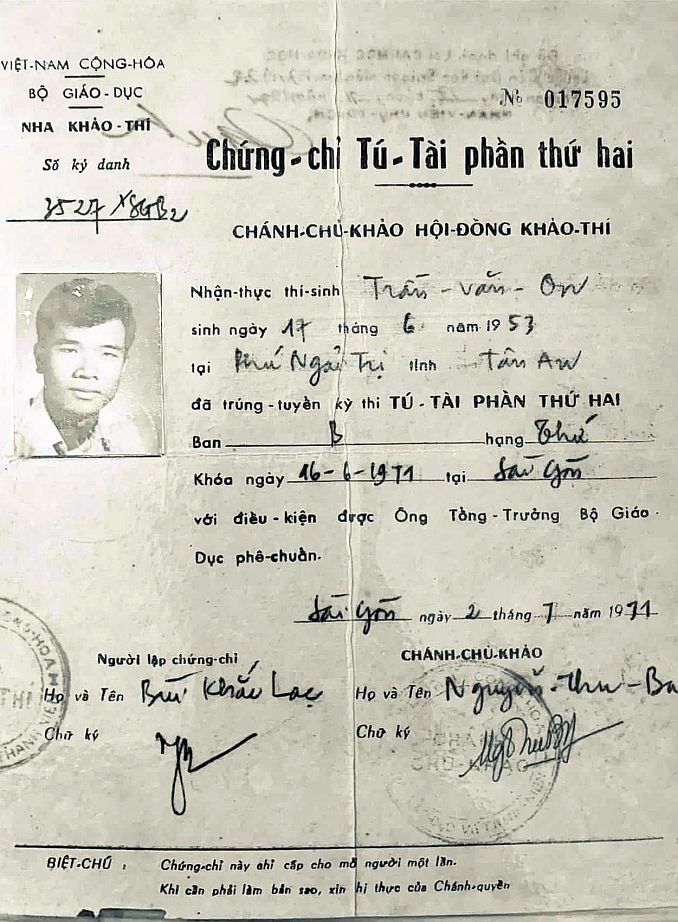 VIỆT-NAM CỘNG-HÒA
BỘ GIÁO-DỤC
NHA KHẢO-THÍ
Số ký danh
3527 XSGB2
№ 017595
Chứng-chỉ Tú-Tài phần thứ hai
CHÁNH-CHỦ-KHẢO HỘI-ĐỒNG KHẢO-THÍ
Nhận-thực thí-sinh Trần-văn-On
sinh ngày 17 tháng 6 năm 1953
tại Phú Ngãi Trị tỉnh Tân An
đã trúng-tuyển kỳ thi TÚ-TÀI PHẦN THỨ HAI
Ban B hạng Thứ
Khóa ngày 16-6-1971 tại Sài Gòn
với điều-kiện được Ông Tổng-Trưởng Bộ Giáo
Dục phê-chuẩn.
Sài Gòn ngày 2 tháng 7 năm 1971
Người lập chứng-chỉ
Họ và Tên Bùi Khắc Lạc
Chữ ký
CHÁNH-CHỦ-KHẢO
Họ và Tên Nguyễn-Thu-Ba
Chữ ký
BIỆT-CHÚ : Chứng-chỉ này chỉ cấp cho mỗi người một lần.
Khi cần phải làm bản sao, xin thị thực của Chánh-quyền